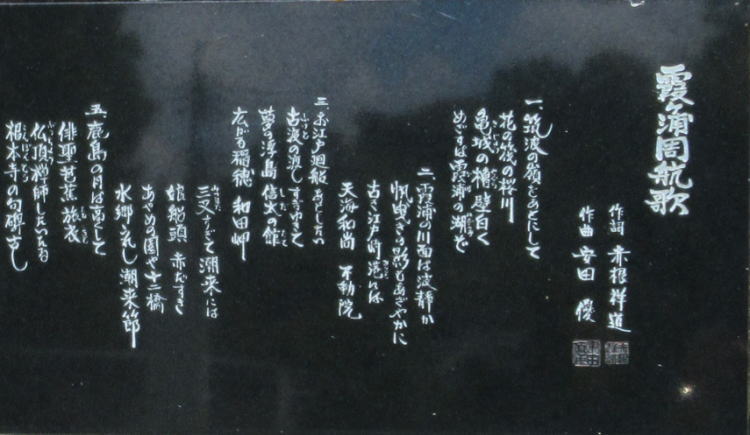 霞ケ浦周航歌
作詞 赤根祥道
作曲 安田優
一、筑波の嶺をあとにして
花の筏の桜川
亀城の櫓壁白く
めざすは霞浦の湖ぞ
二、霞浦の川面は波静か
帆曳きの影もあざやかに
古き江戸崎港には
天海和尚 不動院
三、お江戸廻船
古渡の渡し
葦の浮島 信太の館
広がる稲穂 和田岬
三叉すぎて潮来には
娘船頭 赤だすき
あやめの園や十二橋
水郷うれし潮来節
五、鹿島の月は高くして
俳聖芭蕉 旅衣
仏頂禅師
根本寺の句碑古し